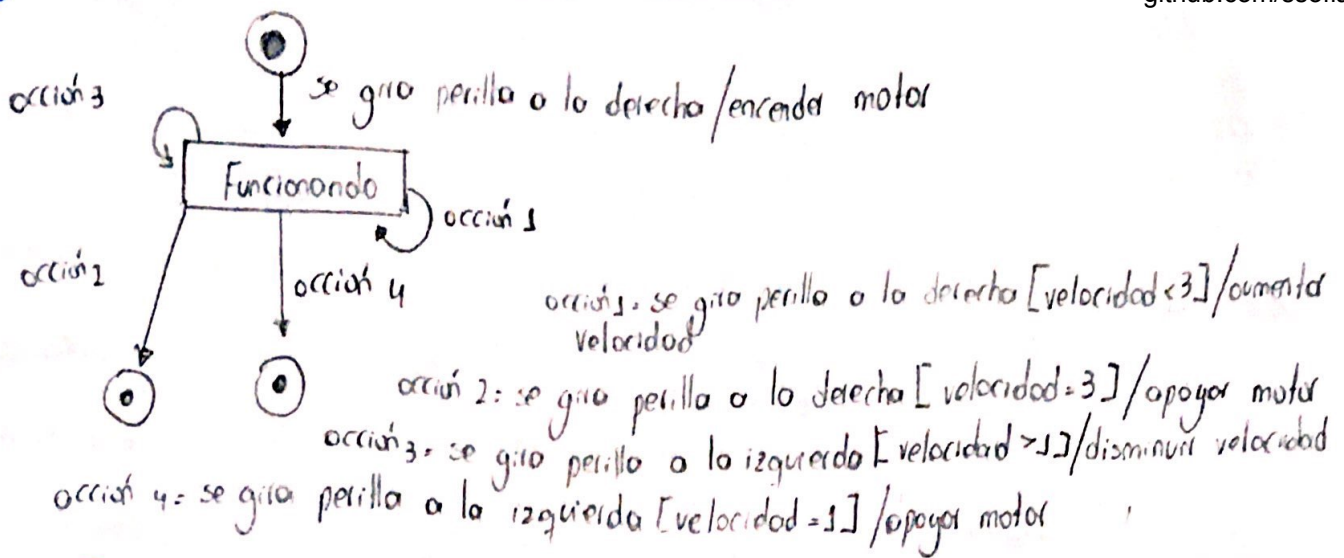 acción 3
se gira perilla a la derecha/encender motor
Funcionando
acción 1
acción 2
acción 4
acción 1: se gira perilla a la derecha [velocidad<3]/aumentar
velocidad
acción 2: se gira perilla a la derecha [velocidad=3]/apagar motor
acción 3: se gira perilla a la izquierda [velocidad >1]/disminuir velocidad
acción 4: se gira perilla a la izquierda [velocidad=1]/apagar motor